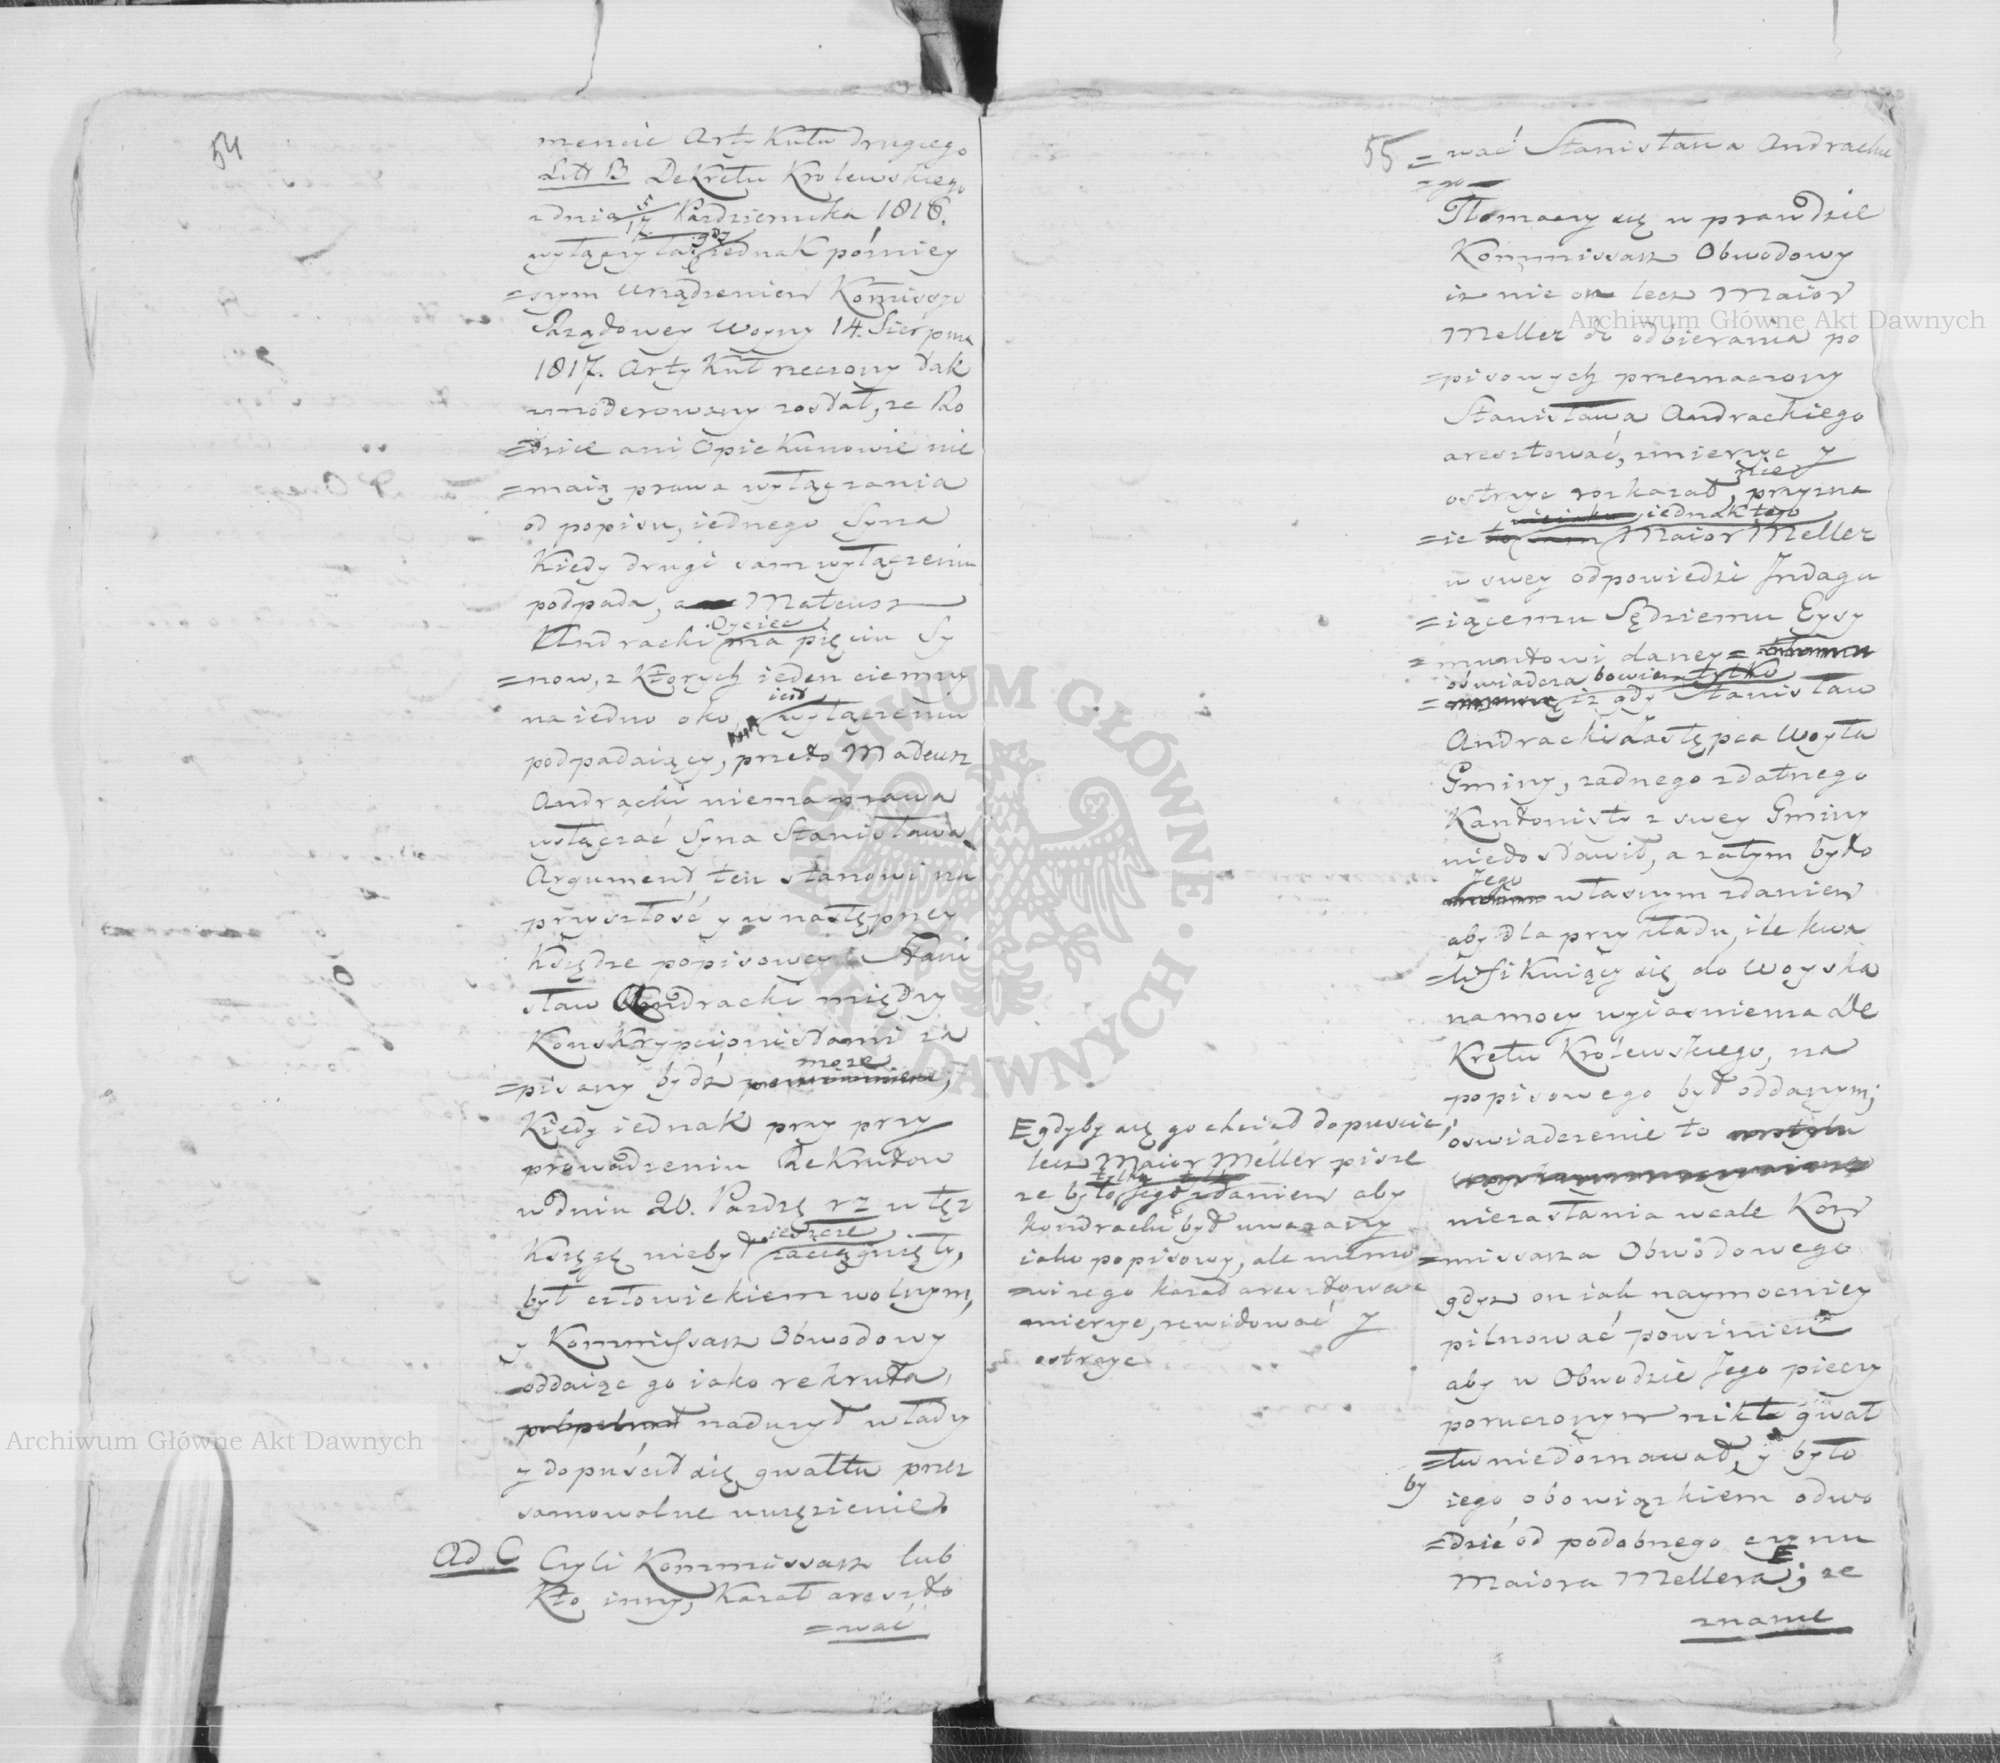 54
mencie Artykułu drugiego
Litt B Dekretu Krolewskiego
z dnia 5/17 Pazdziernika 1816.
wyłączyła; gdy iednak pózniey
=szym urządzeniem Kommissyi
Rządowey Woyny 14. Sierpnia
1817. Artykuł rzeczony tak
zmoderowany został, ze Ro
=dzice ani Opiekunowie nie
=maią prawa wyłączania
od popisu, iednego Syna
Kiedy drugi sam wyłączeniu
podpada, a Mateusz
Andracki Oyciec ma pięciu Sy
=now, z ktorych ieden ciemny
na iedno oko, iest wyłączeniu
podpadaiący, przeto Mateusz
Andracki niema prawa
wyłączać Syna Stanisława.
Argument ten stanowi na
przyszłość y w następney
Księdze popisowey Stani
sław Andracki między
Konskrypcionistami za
=pisany bydź moze;
Kiedy iednak przy przy
prowadzeniu Rekrutow
w dniu 20. Pazdz rz w tęz
Księgę niebył ieszcze zaciągnięty,
był człowiekiem wolnym,
y Kommissarz Obwodowy
oddaiąc go iako rekruta,
naduzył władzy
y dopuścił się gwałtu przez
samowolne uwięzienie.
Ad C Czyli Kommissarz lub
Kto inny, Kazał areszto
=wać
55 =wać Stanisława Andrackie
=go
Tłomaczy się w prawdzie
Kommissarz Obwodowy
iz nie on lecz Maior
Meller do odbierania po
=pisowych przeznaczony
Stanisława Andrackiego
aresztować, zmierzyc y
ostrzyc rozkazał, nie przyzna
=ie iednak tego Maior Meller
w swey odpowiedzi Indagu
=iącemu Sędziemu Eysy
=muntowi daney =
oswiadcza bowiem tylko
iz gdy Stanisław
Andracki zastępca Woyta
Gminy, zadnego zdatnego
Kantonisty z swey Gminy
niedostawił, a zatym było
Jego własnym zdaniem
aby dla przykładu, ile kwa
=lifikuiący się do Woyska
na mocy wyiasnienia De
Kretu Krolewskiego, na
popisowego był oddanym;
oswiadczenie to
niezasłania wcale Kom
=missarza Obwodowego
gdyz on iak naymocniey
pilnować powinien
aby w Obwodzie Jego pieczy
poruczonym nikt gwał
=tu niedoznawał, y było
by iego obowiązkiem odwo
=dzić od podobnego czynu
Maiora Mellera; ze
znanie
E gdyby się go chciał dopuscic,
lecz Maior Meller pisze
ze było tylko Jego zdaniem aby
kondracki był uwazany
iako popisowy, ale nemo
=wi zego kazał aresztowac
mierzyc, rewidować y
ostrzyc
Archiwum Główne Akt Dawnych
Archiwum Główne Akt Dawnych
ARCHIWUM GŁÓWNE · AKT DAWNYCH ·